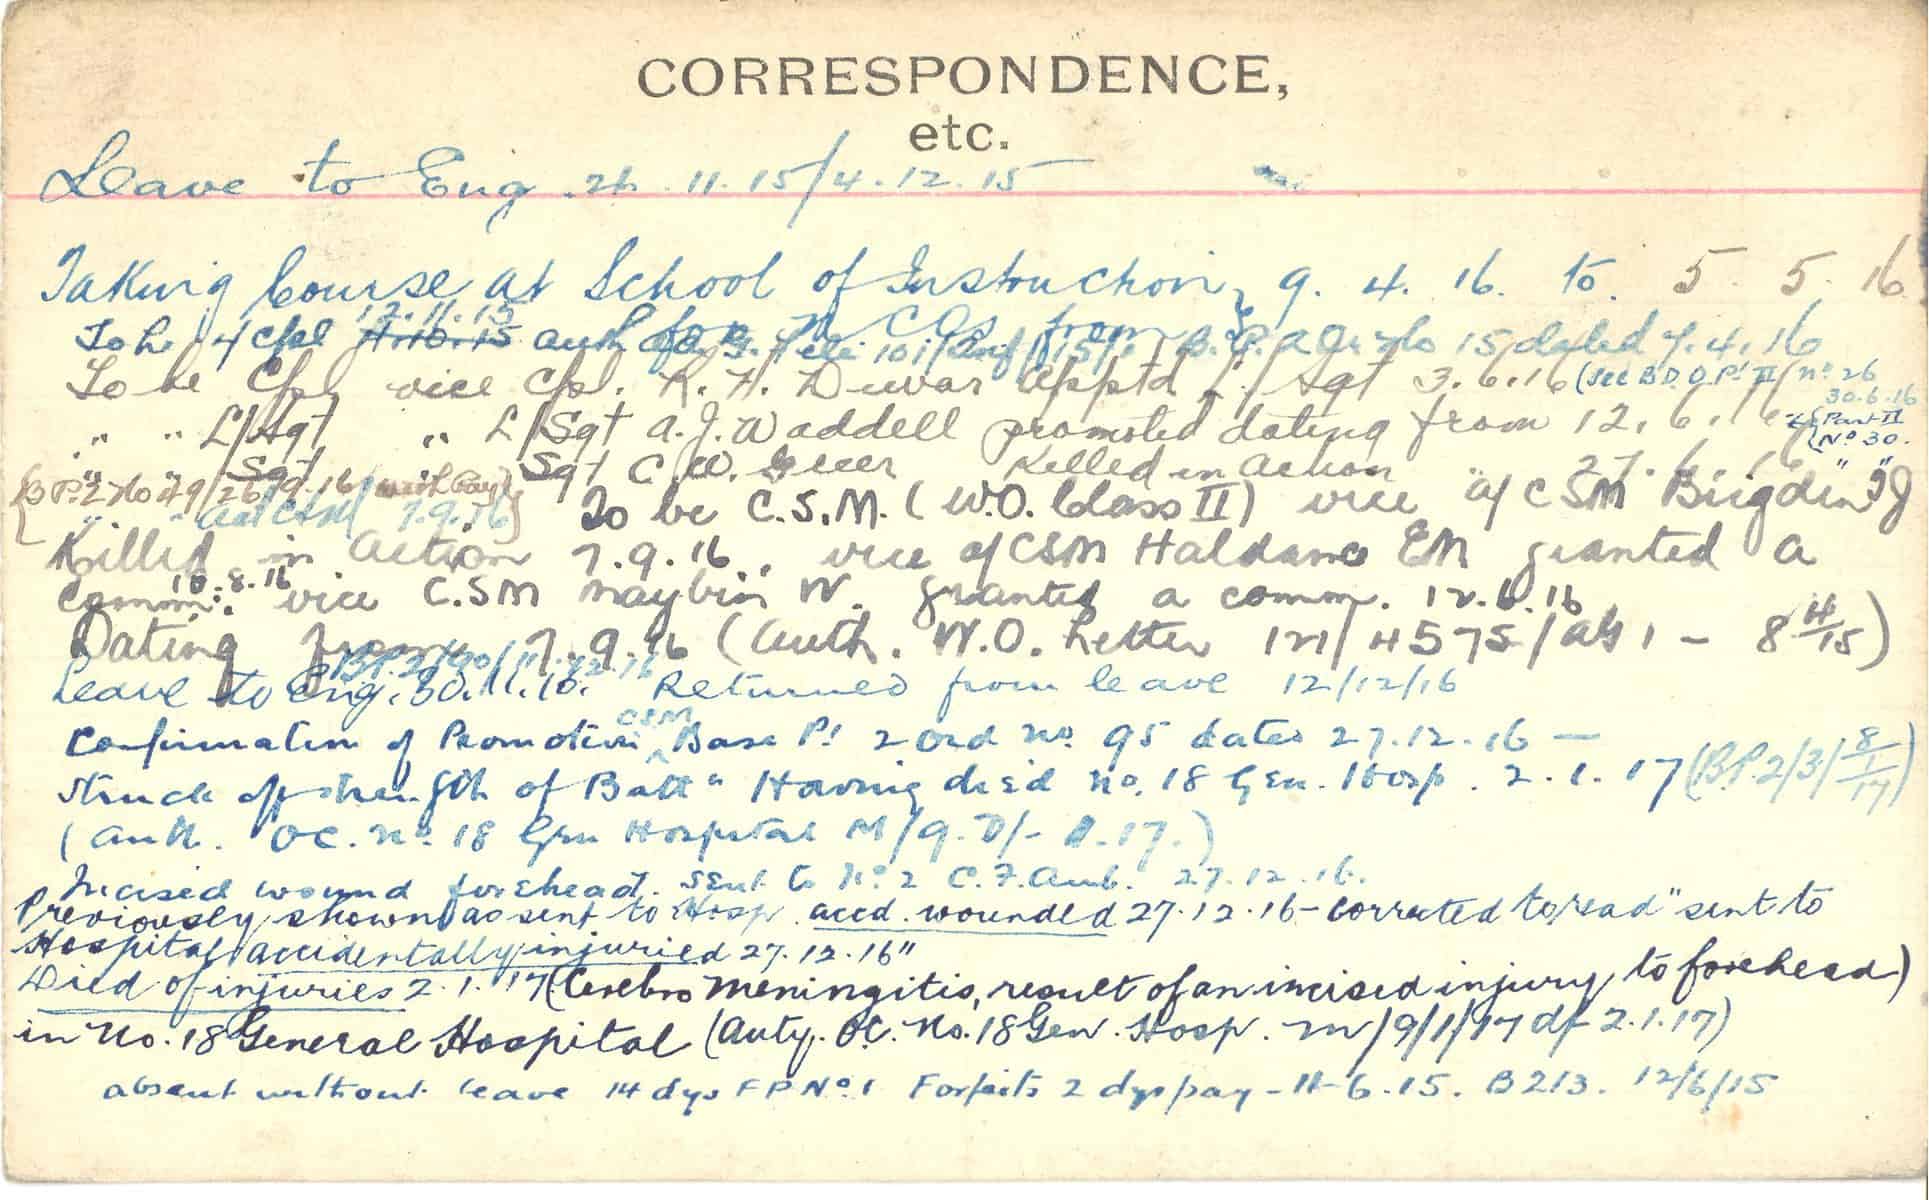 CORRESPONDENCE,
etc.
Leave to Eng. 26.11.15/4.12.15
Taking Course at School of Instruction, 9. 4. 16. to. 5. 5. 16.
12.11.15
To be a/Cpl 11.10.15 auth No 15, dated 7.4.16
To be Cpl vice Cpl. R. H. Dewar apptd L/Sgt 3.6.16 (see B D O Pt II No 26
30.6.16
" " L/Sgt " L/Sgt A. J. Waddell promoted dating from 12. 6. 16 Part II
No 30.
" Sgt " Sgt C. W. Greer Killed in action 27. 6. 16 " "
{BP 2 No 49/26/9.16 (with Pay)} To be C.S.M. (W.O. Class II) vice a/CSM Brigden J
" " a/CSM 7.9.16
Killed in action 7.9.16, vice a/CSM Haldane EM granted a
comm: 10.8.16 vice C.SM Maybin W. granted a comm. 12.6.16
Dating from 7.9.16 (Auth. W.O. Letter 121/4575/AG 1 - 8 4/15)
BP.2/90/11.12.16
Leave to Eng. 30.11.16. Returned from leave 12/12/16
Confirmation of Promotion CSM Base Pt 2 Ord No. 95 dates 27.12.16 —
Struck off strength of Battn Having died No. 18 Gen. Hosp. 2.1.17 (BP.2/3/8/1/17)
(Auth. OC. No. 18 Gen Hospital M/9. D/- .17.)
Incised wound forehead. sent to No. 2 C.F. Amb. 27.12.16.
Previously shown as sent to Hosp accd. wounded 27.12.16 - corrected to read "sent to
Hospital accidentally injuried 27.12.16"
Died of injuries 2.1.17 (Cerebro Meningitis, result of an incised injury to forehead)
in No. 18 General Hospital (Auty. OC. No. 18 Gen. Hosp. M/9/1/17 df 2.1.17)
absent without leave 14 dys F P No. 1 Forfeits 2 dys pay - 11-6.15. B 213. 12/6/15